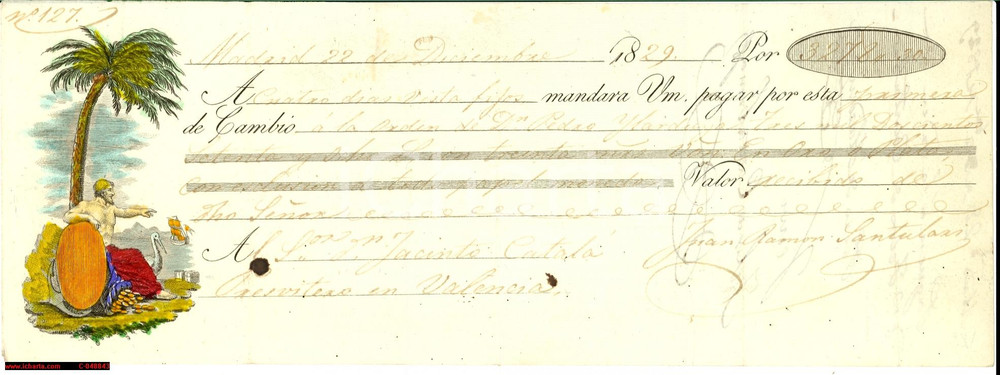 Nº 127.
Madrid 22 de Diciembre 1829. Por
A cuatro dias vista fijos mandara Vm. pagar por esta primera
de Cambio á la orden de Dn Pedro Tres mil Doscientos
y ocho treinta mrs Vn. En Oro o Plata
con esclusion de todo papel moneda, Valor recibido de
dho Señor
A Jacinto Catala Juan Ramon Santulari
Presvitero en Valencia.
www.icharta.com C-048843